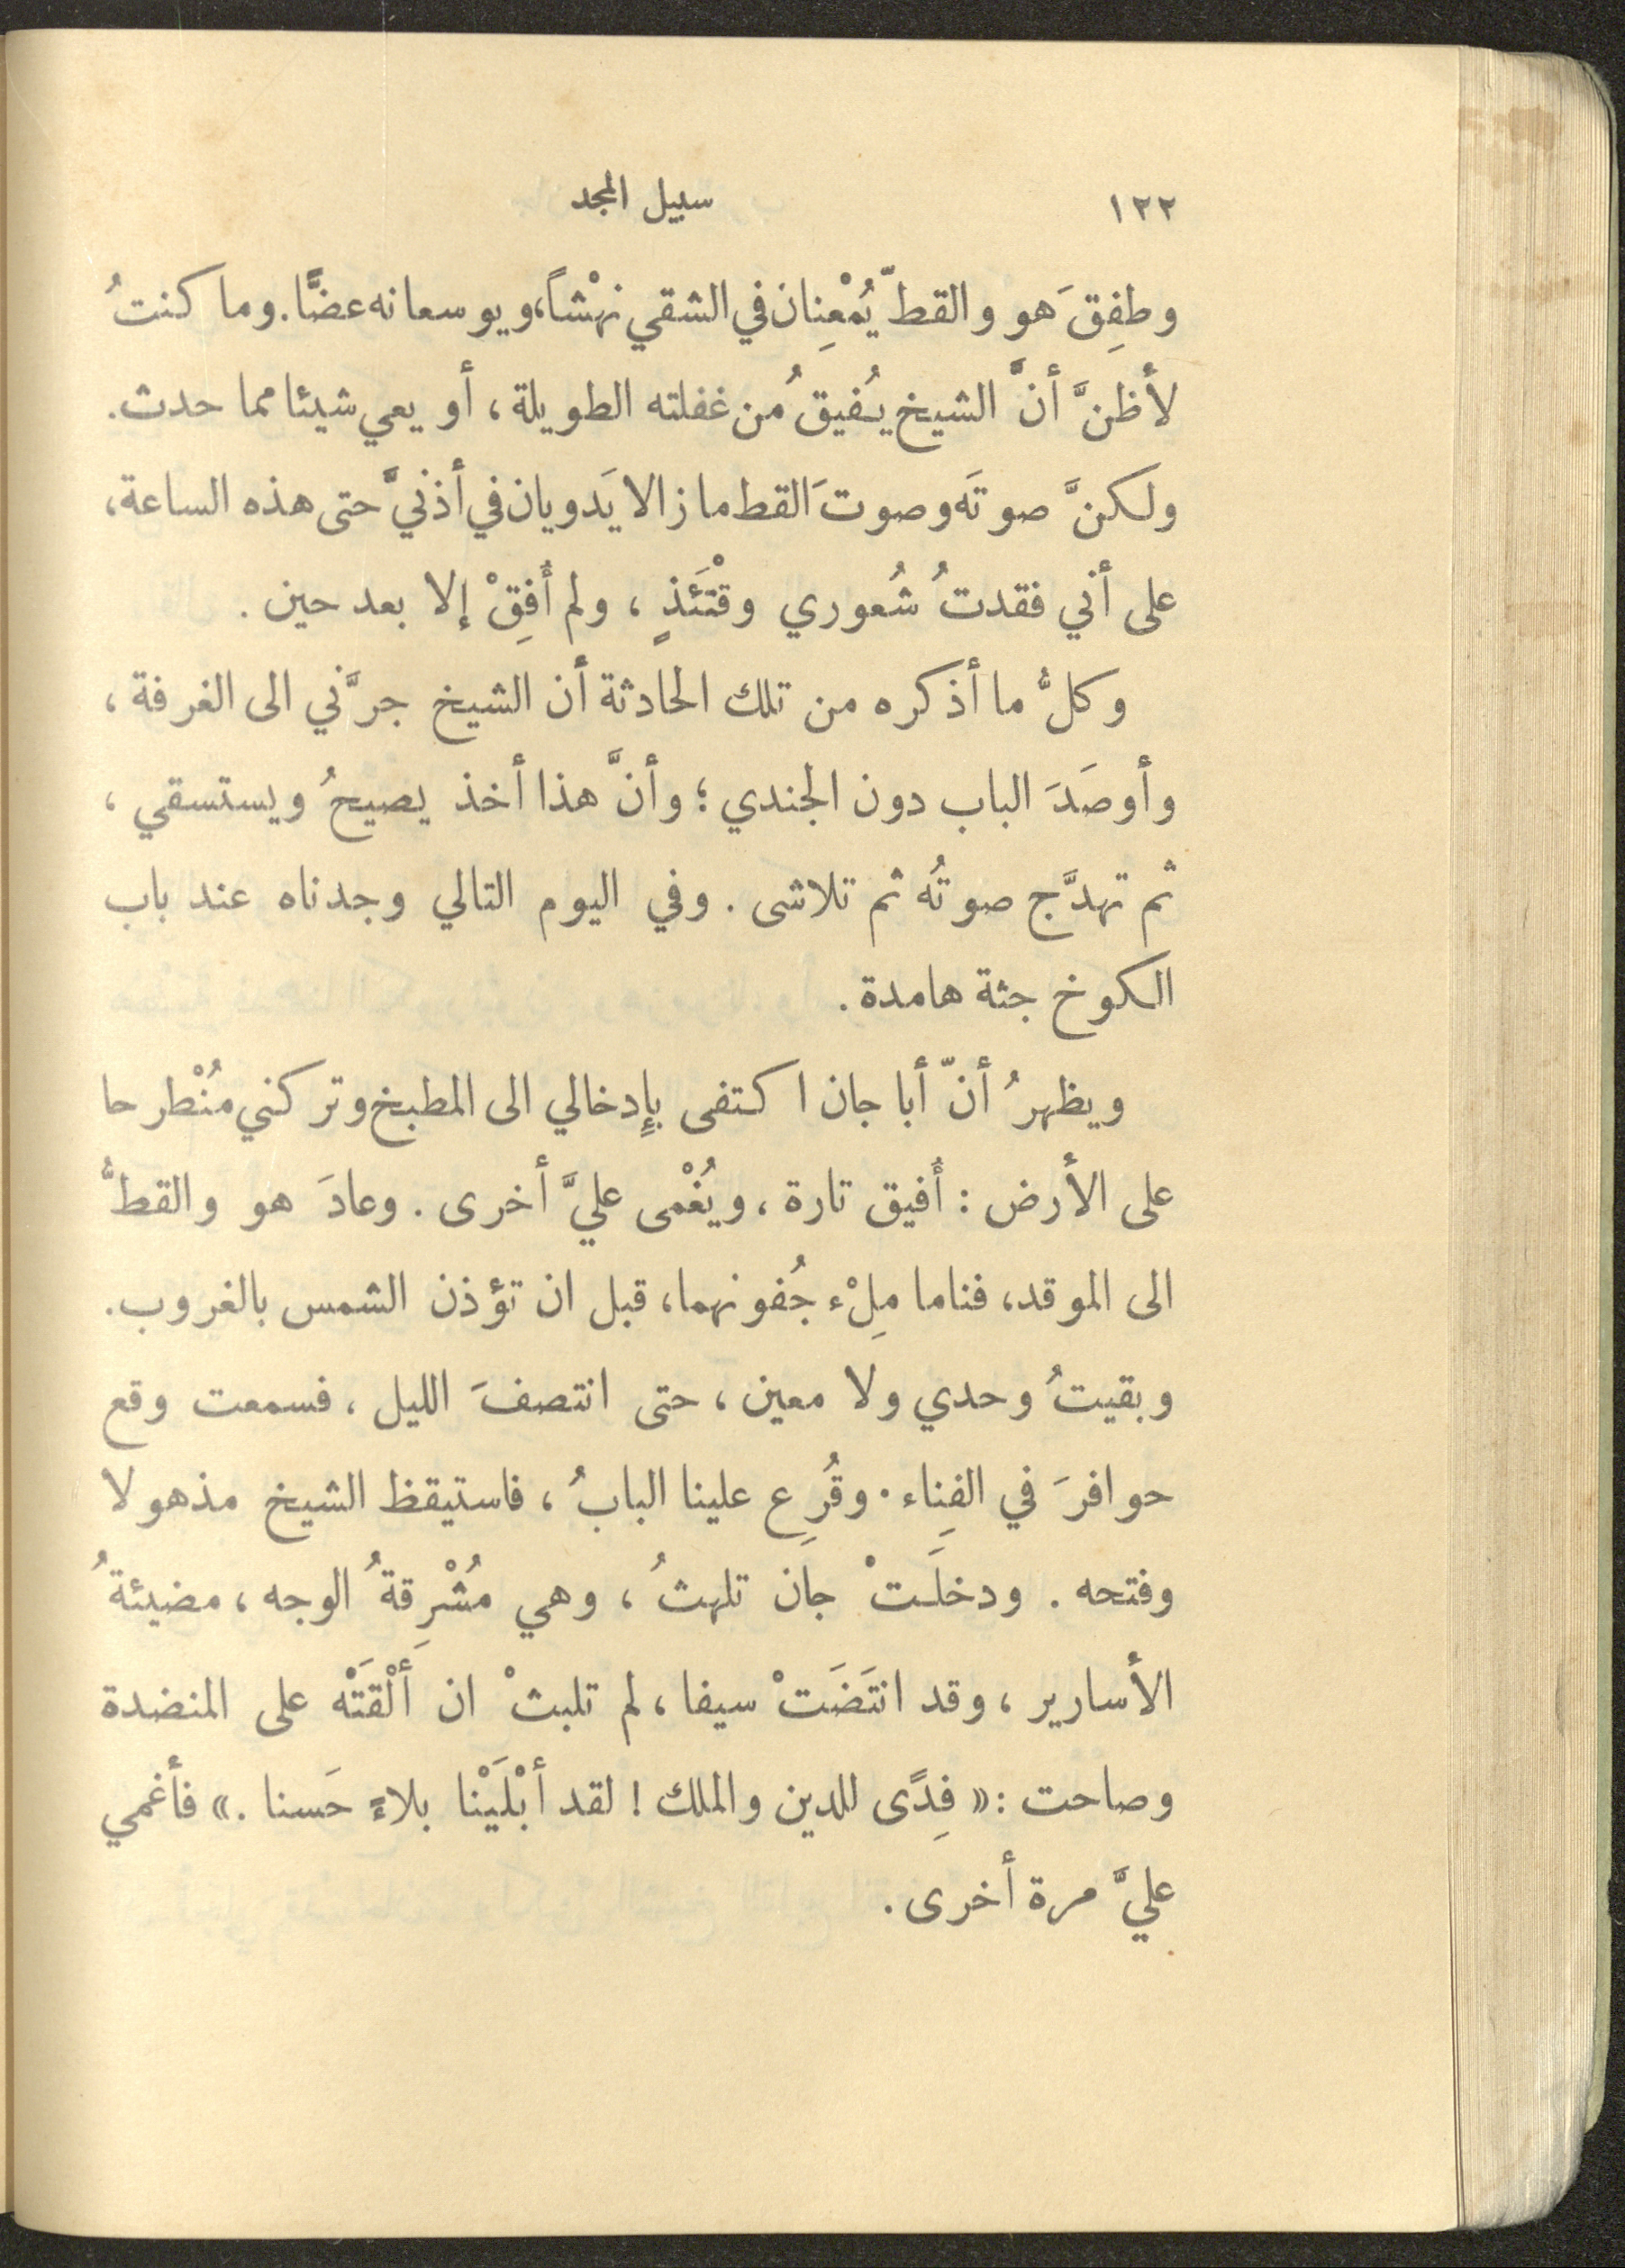 ١٢٢ سبيل المجد
وطفِقَ هو والقطّ يُمْعِنان في الشقي نهْشاً، ويوسعانه عضًّا. وما كنتُ
لأظنَّ أنَّ الشيخ يُفيقُ من غفلته الطويلة، أو يعي شيئا مما حدث.
ولكنَّ صوتَه وصوتَ القط ما زالا يَدويان في أذنيَّ حتى هذه الساعة،
على أني فقدتُ شُعوري وقْتَئذٍ، ولم أُفِقْ إلا بعد حين.
وكلُّ ما أذكره من تلك الحادثة أن الشيخ جرَّني الى الغرفة،
وأوصَدَ الباب دون الجندي؛ وأنَّ هذا أخذ يصيحُ ويستسقي،
ثم تهدَّج صوتُه ثم تلاشى. وفي اليوم التالي وجدناه عند باب
الكوخ جثة هامدة.
ويظهرُ أنّ أبا جان اكتفى بإِدخالي الى المطبخ وتركني مُنْطرحا
على الأرض: أُفيق تارة، ويُغْمى عليَّ أخرى. وعادَ هو والقطُّ
الى الموقد، فناما مِلْء جُفونهما، قبل ان تؤذن الشمس بالغروب.
وبقيتُ وحدي ولا معين، حتى انتصفَ الليل، فسمعت وقع
حوافرَ في الفِناء. وقُرِع علينا البابُ، فاستيقظ الشيخ مذهولا
وفتحه. ودخلَتْ جان تلهثُ، وهي مُشْرِقةُ الوجه، مضيئةُ
الأسارير، وقد انتَضَتْ سيفا، لم تلبثْ ان أَلْقَتْه على المنضدة
وصاحت: «فِدًى للدين والملك! لقد أبْلَيْنا بلاءً حَسنا.» فأغمي
عليَّ مرة أخرى.